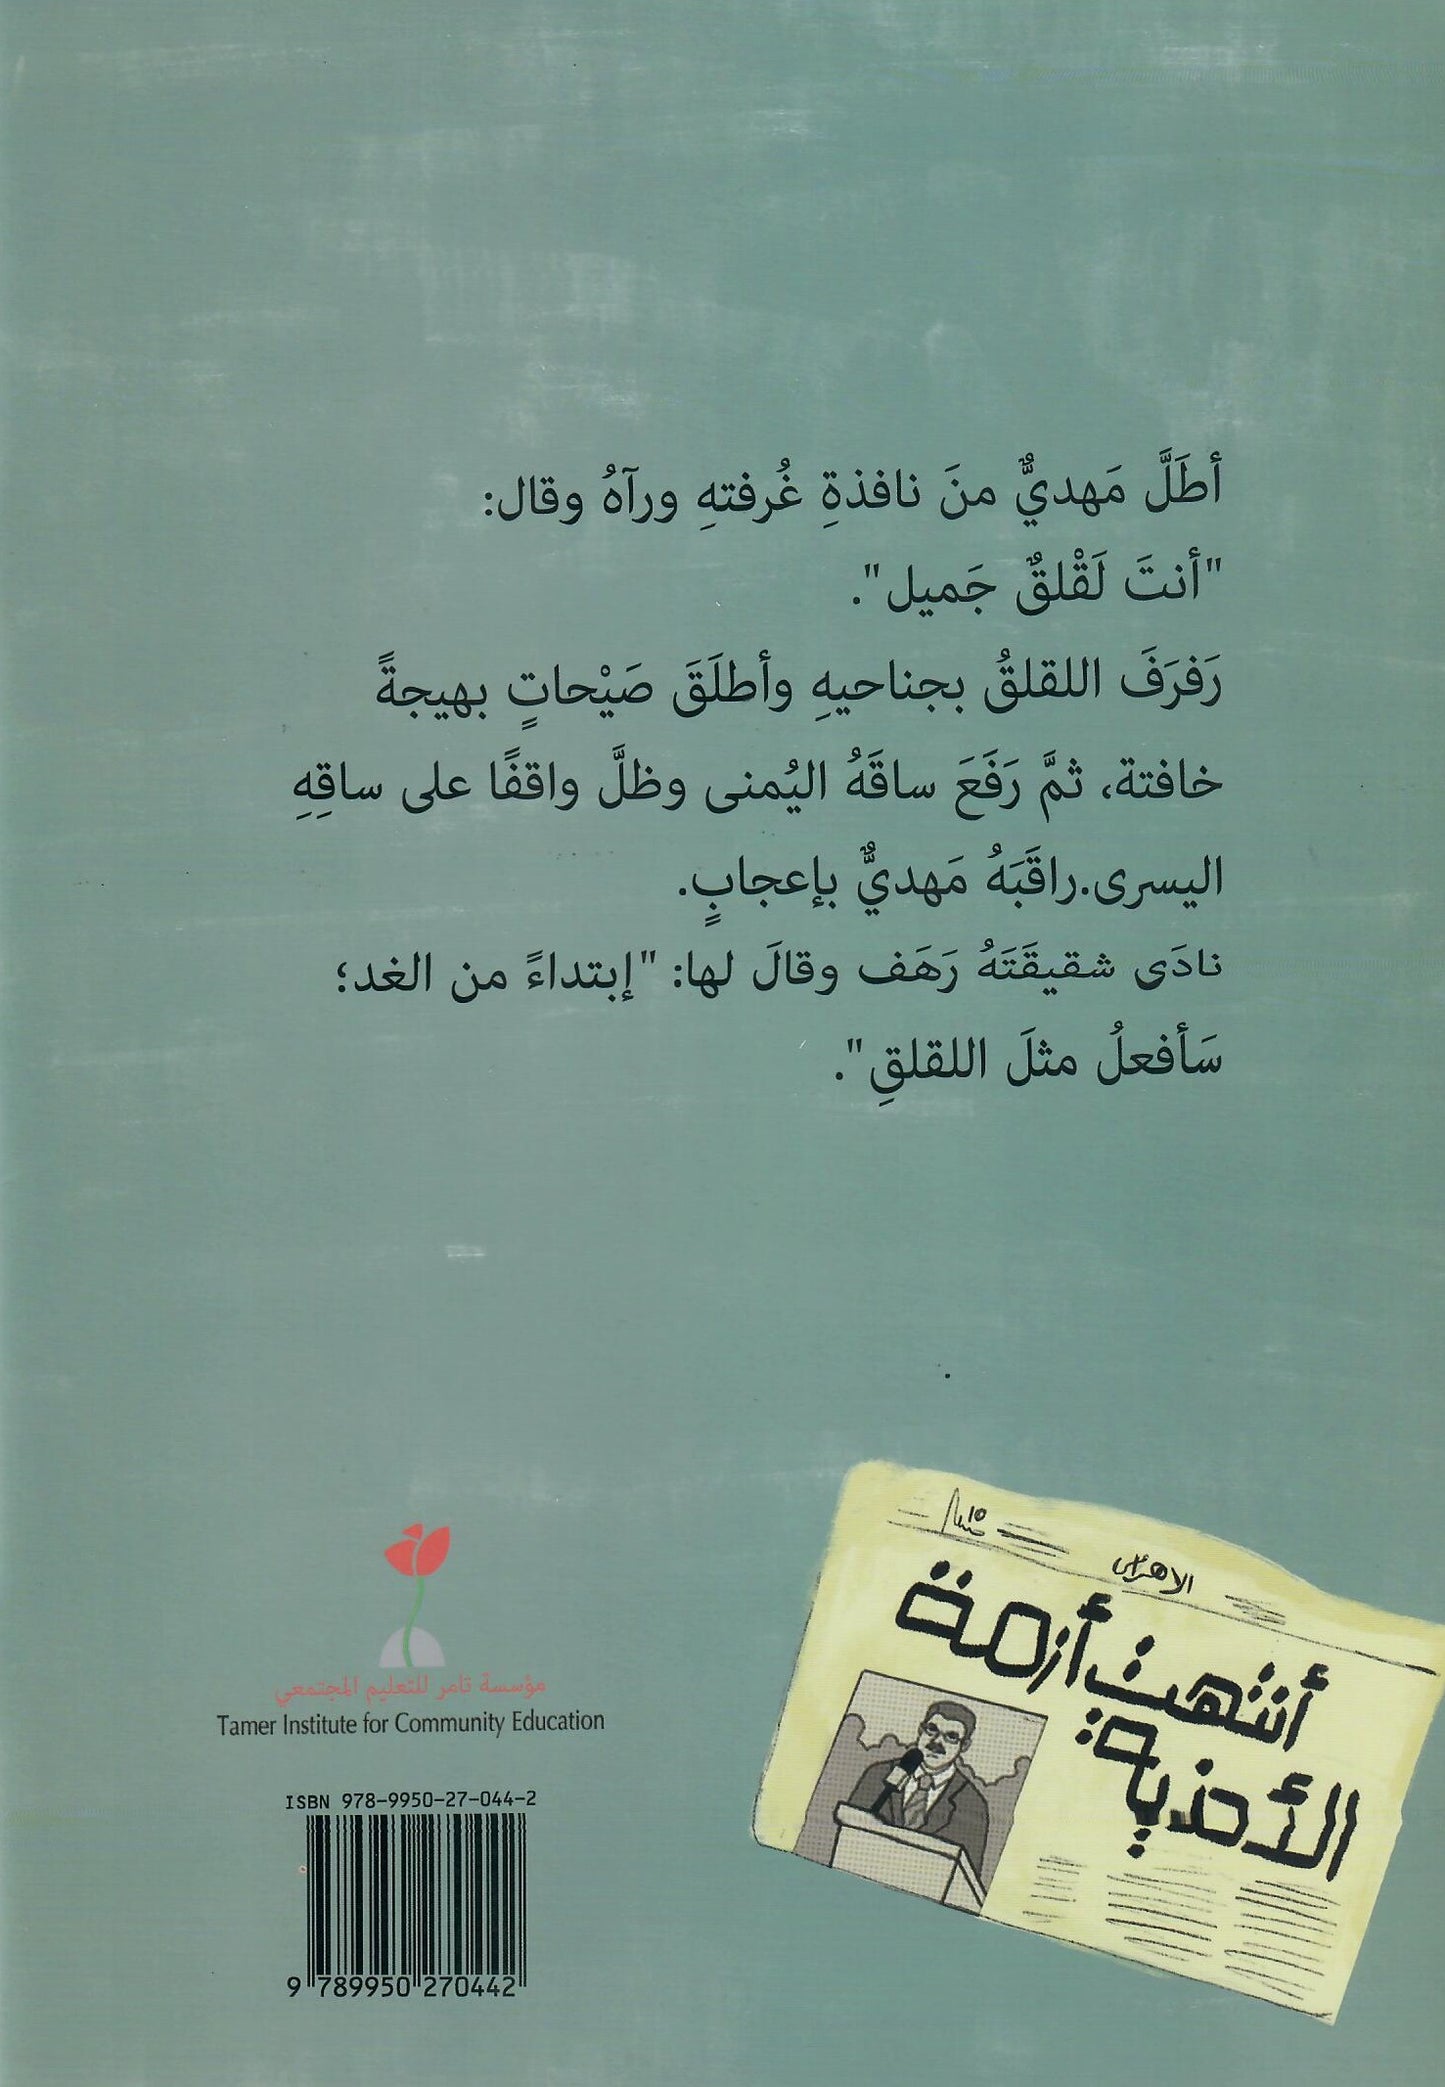 أطَلَّ مَهديٌّ منَ نافذةِ غُرفتهِ ورآهُ وقال:
"أنتَ لَقْلقٌ جَميل".
رَفرَفَ اللقلقُ بجناحيهِ وأطلَقَ صَيْحاتٍ بهيجةً
خافتة، ثمَّ رَفَعَ ساقَهُ اليُمنى وظلَّ واقفًا على ساقِهِ
اليسرى.راقَبَهُ مَهديٌّ بإعجابٍ.
نادَى شقيقَتَهُ رَهَف وقالَ لها: "إبتداءً من الغد؛
سَأفعلُ مثلَ اللقلقِ".
أنتهت أزمة
الأحذية
مؤسسة تامر للتعليم المجتمعي
Tamer Institute for Community Education
ISBN 978-9950-27-044-2
9 789950 270442